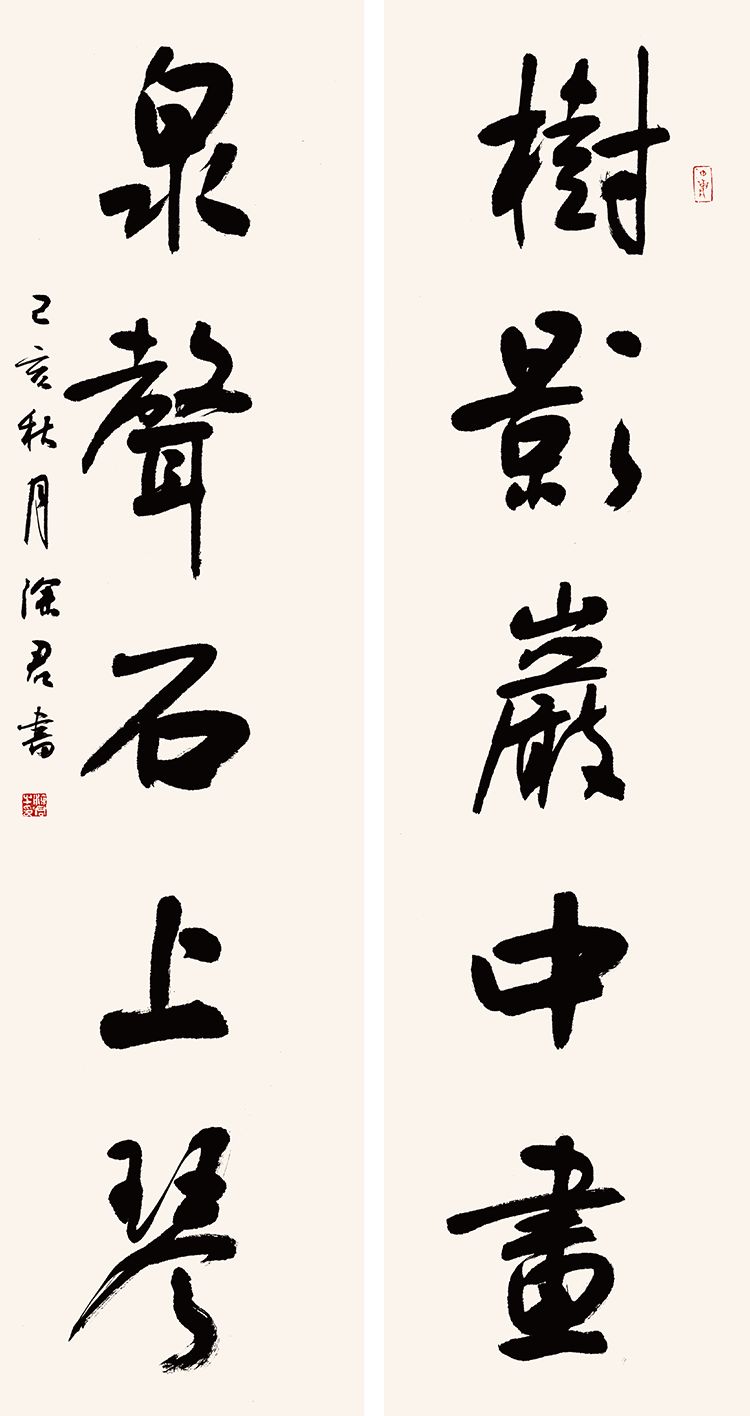 樹影巖中畫
泉聲石上琴
己亥秋月深君書